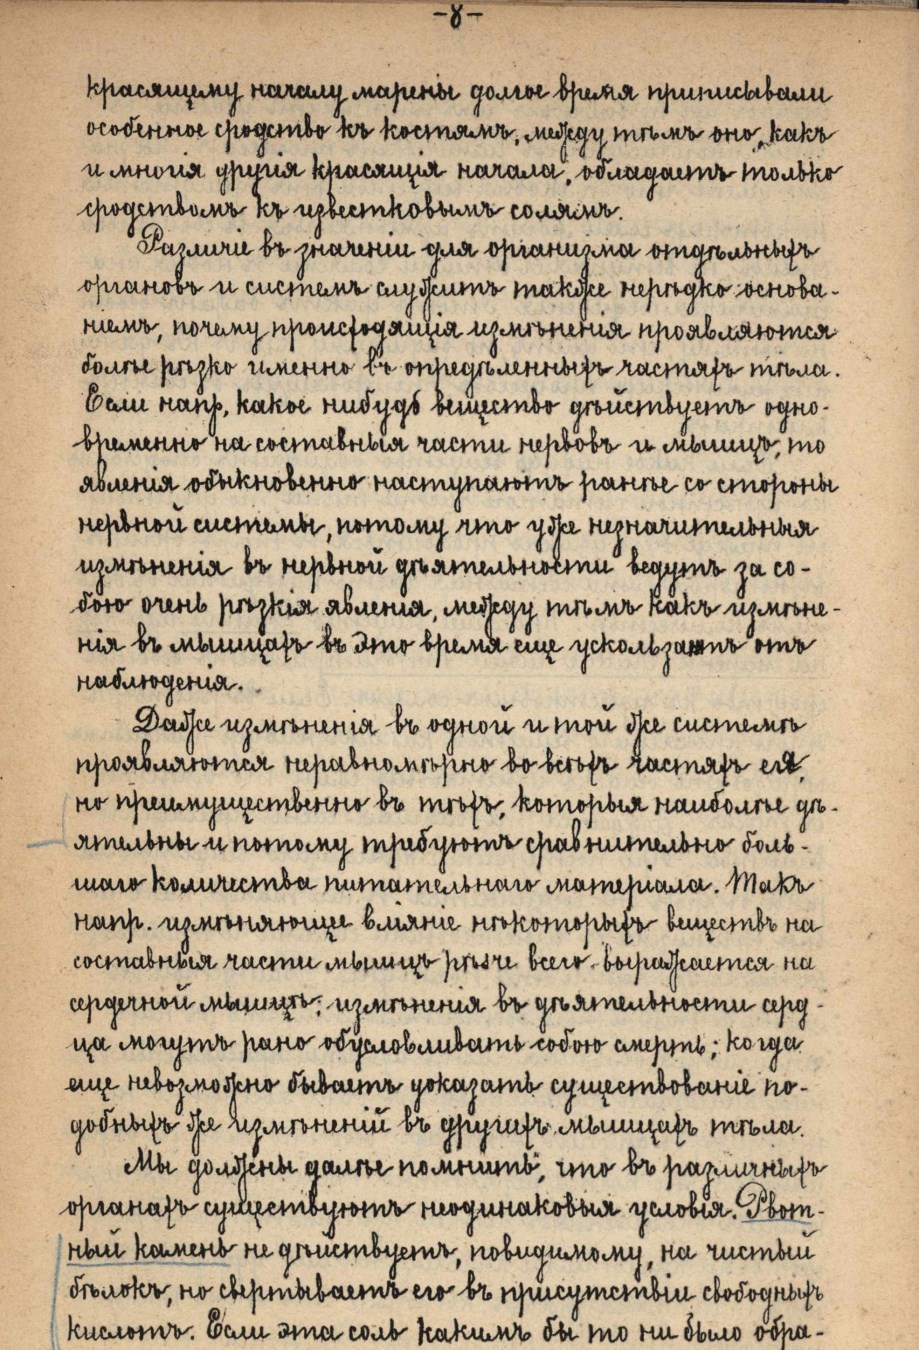 -8-
красящему началу марены долгое время приписывали
особенное сродство къ костямъ, между тѣмъ оно, какъ
и многія другія красящія начала, обладаетъ только
сродствомъ къ известковымъ солямъ.
Различіе въ значеніи для организма отдѣльныхъ
органовъ и системъ служитъ также нерѣдко основа-
ніемъ, почему происходящія измѣненія проявляются
болѣе рѣзко именно въ опредѣленныхъ частяхъ тѣла.
Если напр, какое нибудь вещество дѣйствуетъ одно-
временно на составныя части нервовъ и мышцъ, то
явленія обыкновенно наступаютъ ранѣе со стороны
нервной системы, потому что уже незначительныя
измѣненія въ нервной дѣятельности ведутъ за со-
бою очень рѣзкія явленія, между тѣмъ какъ измѣне-
нія въ мышцахъ въ это время еще ускользаютъ отъ
наблюденія.
Даже измѣненія въ одной и той же системѣ
проявляются неравномѣрно во всѣхъ частяхъ ея,
но преимущественно въ тѣхъ, которыя наиболѣе дѣ-
ятельны и потому требуютъ сравнительно боль-
шаго количества питательнаго матеріала. Такъ
напр. измѣняющее вліяніе нѣкоторыхъ веществъ на
составныя части мышцъ рѣзче всего выражается на
сердечной мышцѣ; измѣненія въ дѣятельности серд-
ца могутъ рано обусловливать собою смерть; когда
еще невозможно бываетъ указать существованіе по-
добныхъ же измѣненій въ другихъ мышцахъ тѣла.
Мы должны далѣе помнить, что въ различныхъ
органахъ существуютъ неодинаковыя условія. Рвот-
ный камень не дѣйствуетъ, повидимому, на чистый
бѣлокъ, но свертываетъ его въ присутствіи свободныхъ
кислотъ. Если эта соль какимъ бы то ни было обра-